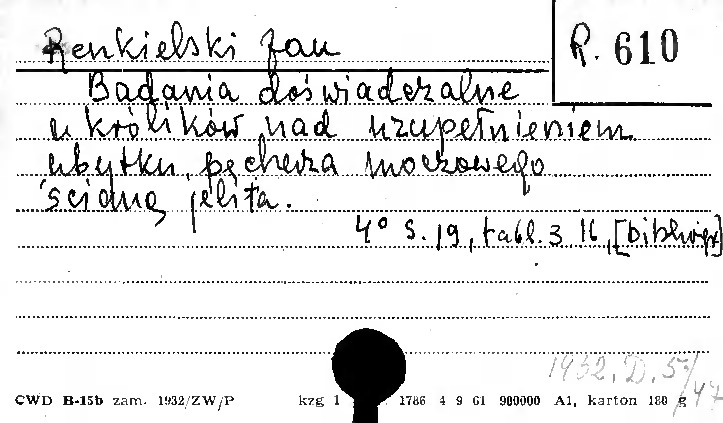 Renkielski Jan
R. 610
Badania doświadczalne
u królików nad uzupełnieniem
ubytku pęcherza moczowego
ścianą jelita.
4° s. 19, tabl. 3 16, [bibliogr]
1932. D. 5/47
CWD B-15b zam. 1932/ZW/P kzg 1 1786 4 9 61 900000 A1, karton 180 g